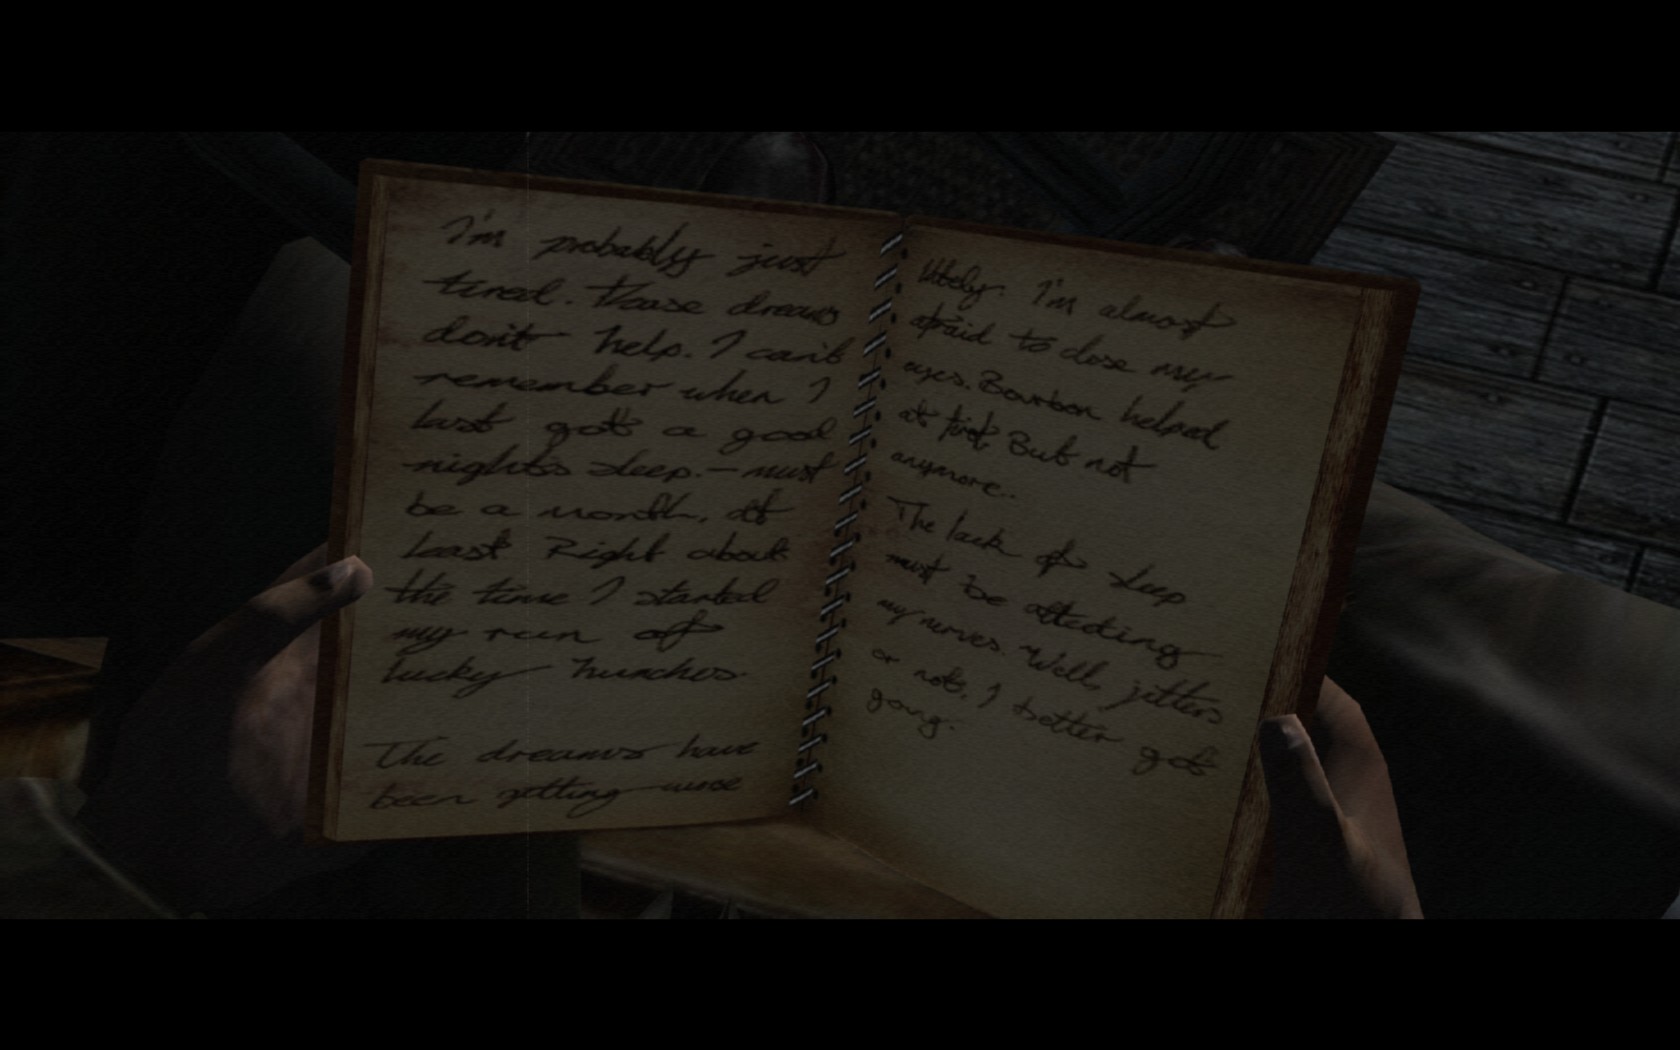 I'm probably just
tired. These dreams
don't help. I can't
remember when I
last got a good
night's sleep. – must
be a month, at
least. Right about
the time I started
my run of
lucky hunches.
The dreams have
been getting worse
lately. I'm almost
afraid to close my
eyes. Bourbon helped
at first. But not
anymore..
The lack of sleep
must be affecting
my nerves. Well, jitters
or not, I better get
going.